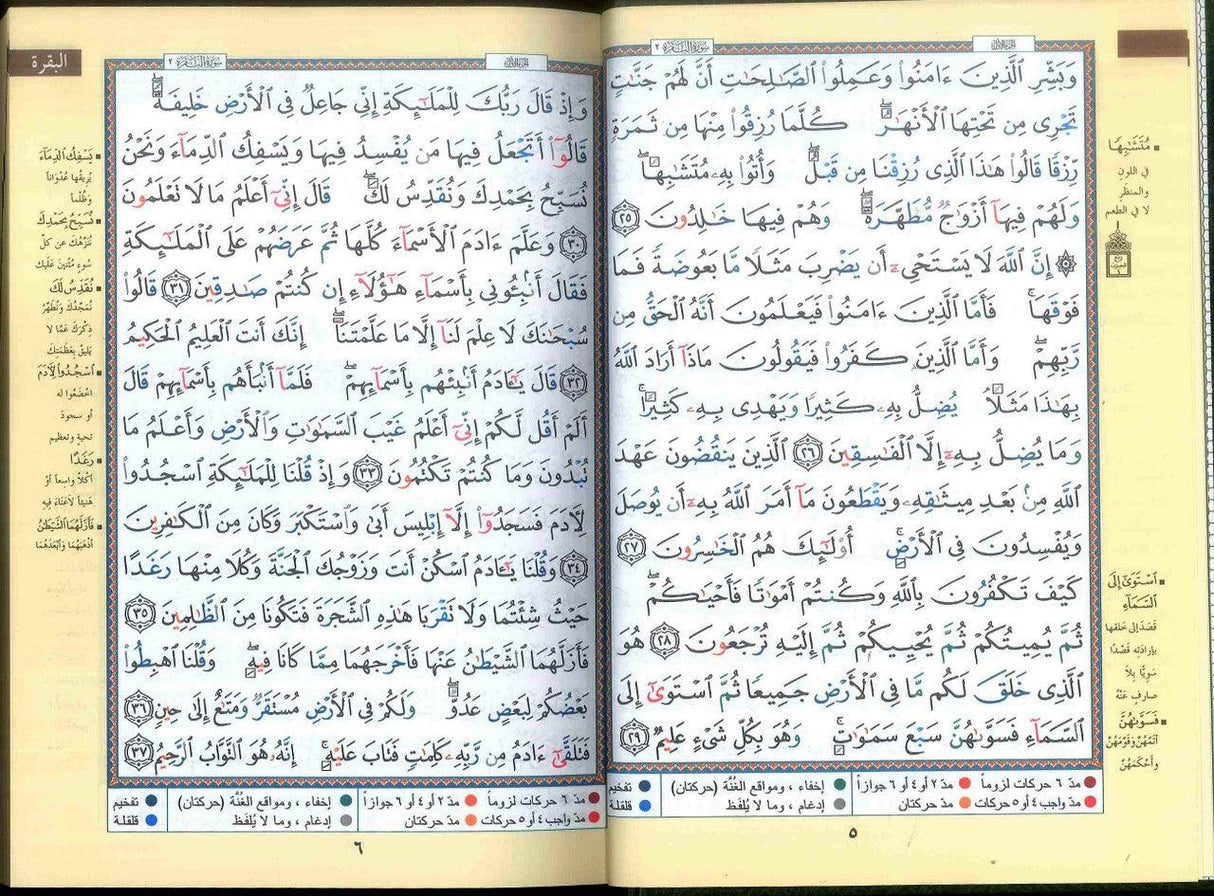 سورة البقرة ٢
الجزء الأول
وَبَشِّرِ ٱلَّذِينَ ءَامَنُوا۟ وَعَمِلُوا۟ ٱلصَّـٰلِحَـٰتِ أَنَّ لَهُمْ جَنَّـٰتٍ
تَجْرِى مِن تَحْتِهَا ٱلْأَنْهَـٰرُ ۖ كُلَّمَا رُزِقُوا۟ مِنْهَا مِن ثَمَرَةٍ
رِّزْقًا قَالُوا۟ هَـٰذَا ٱلَّذِى رُزِقْنَا مِن قَبْلُ ۖ وَأُتُوا۟ بِهِۦ مُتَشَـٰبِهًا ۖ
وَلَهُمْ فِيهَآ أَزْوَٰجٌ مُّطَهَّرَةٌ ۖ وَهُمْ فِيهَا خَـٰلِدُونَ ﴿٢٥﴾
۞ إِنَّ ٱللَّهَ لَا يَسْتَحْىِۦٓ أَن يَضْرِبَ مَثَلًا مَّا بَعُوضَةً فَمَا
فَوْقَهَا ۚ فَأَمَّا ٱلَّذِينَ ءَامَنُوا۟ فَيَعْلَمُونَ أَنَّهُ ٱلْحَقُّ مِن
رَّبِّهِمْ ۖ وَأَمَّا ٱلَّذِينَ كَفَرُوا۟ فَيَقُولُونَ مَاذَآ أَرَادَ ٱللَّهُ
بِهَـٰذَا مَثَلًا ۘ يُضِلُّ بِهِۦ كَثِيرًا وَيَهْدِى بِهِۦ كَثِيرًا ۚ
وَمَا يُضِلُّ بِهِۦٓ إِلَّا ٱلْفَـٰسِقِينَ ﴿٢٦﴾ ٱلَّذِينَ يَنقُضُونَ عَهْدَ
ٱللَّهِ مِنۢ بَعْدِ مِيثَـٰقِهِۦ وَيَقْطَعُونَ مَآ أَمَرَ ٱللَّهُ بِهِۦٓ أَن يُوصَلَ
وَيُفْسِدُونَ فِى ٱلْأَرْضِ ۚ أُو۟لَـٰٓئِكَ هُمُ ٱلْخَـٰسِرُونَ ﴿٢٧﴾
كَيْفَ تَكْفُرُونَ بِٱللَّهِ وَكُنتُمْ أَمْوَٰتًا فَأَحْيَـٰكُمْ ۖ
ثُمَّ يُمِيتُكُمْ ثُمَّ يُحْيِيكُمْ ثُمَّ إِلَيْهِ تُرْجَعُونَ ﴿٢٨﴾ هُوَ
ٱلَّذِى خَلَقَ لَكُم مَّا فِى ٱلْأَرْضِ جَمِيعًا ثُمَّ ٱسْتَوَىٰٓ إِلَى
ٱلسَّمَآءِ فَسَوَّىٰهُنَّ سَبْعَ سَمَـٰوَٰتٍ ۚ وَهُوَ بِكُلِّ شَىْءٍ عَلِيمٌ ﴿٢٩﴾
مُتَشَـٰبِهًا
في اللونِ
والمنظرِ
لا في الطعم
ٱسْتَوَىٰٓ إِلَى
ٱلسَّمَآءِ
قَصَدَ إلى خلقها
بإرادته قَصْدًا
سَوِيًّا بلا
صارف عَنْهُ
فَسَوَّىٰهُنَّ
أتمّهُنّ وَقَوَّمَهُنّ
وأحْكَمَهُنّ
مدّ ٦ حركات لزوماً
مدّ ٢ أو ٤ أو ٦ جوازاً
إخفاء ، ومواقع الغُنَّة (حركتان)
تفخيم
مدّ واجب ٤ أو ٥ حركات
مدّ حركتان
إدغام ، وما لا يُلفَظ
قلقلة
٥
البقرة
سورة البقرة ٢
الجزء الأول
وَإِذْ قَالَ رَبُّكَ لِلْمَلَـٰٓئِكَةِ إِنِّى جَاعِلٌ فِى ٱلْأَرْضِ خَلِيفَةً ۖ
قَالُوٓا۟ أَتَجْعَلُ فِيهَا مَن يُفْسِدُ فِيهَا وَيَسْفِكُ ٱلدِّمَآءَ وَنَحْنُ
نُسَبِّحُ بِحَمْدِكَ وَنُقَدِّسُ لَكَ ۖ قَالَ إِنِّىٓ أَعْلَمُ مَا لَا تَعْلَمُونَ
﴿٣٠﴾ وَعَلَّمَ ءَادَمَ ٱلْأَسْمَآءَ كُلَّهَا ثُمَّ عَرَضَهُمْ عَلَى ٱلْمَلَـٰٓئِكَةِ
فَقَالَ أَنۢبِـُٔونِى بِأَسْمَآءِ هَـٰٓؤُلَآءِ إِن كُنتُمْ صَـٰدِقِينَ ﴿٣١﴾ قَالُوا۟
سُبْحَـٰنَكَ لَا عِلْمَ لَنَآ إِلَّا مَا عَلَّمْتَنَآ ۖ إِنَّكَ أَنتَ ٱلْعَلِيمُ ٱلْحَكِيمُ
﴿٣٢﴾ قَالَ يَـٰٓـَٔادَمُ أَنۢبِئْهُم بِأَسْمَآئِهِمْ ۖ فَلَمَّآ أَنۢبَأَهُم بِأَسْمَآئِهِمْ قَالَ
أَلَمْ أَقُل لَّكُمْ إِنِّىٓ أَعْلَمُ غَيْبَ ٱلسَّمَـٰوَٰتِ وَٱلْأَرْضِ وَأَعْلَمُ مَا
تُبْدُونَ وَمَا كُنتُمْ تَكْتُمُونَ ﴿٣٣﴾ وَإِذْ قُلْنَا لِلْمَلَـٰٓئِكَةِ ٱسْجُدُوا۟
لِـَٔادَمَ فَسَجَدُوٓا۟ إِلَّآ إِبْلِيسَ أَبَىٰ وَٱسْتَكْبَرَ وَكَانَ مِنَ ٱلْكَـٰفِرِينَ
﴿٣٤﴾ وَقُلْنَا يَـٰٓـَٔادَمُ ٱسْكُنْ أَنتَ وَزَوْجُكَ ٱلْجَنَّةَ وَكُلَا مِنْهَا رَغَدًا
حَيْثُ شِئْتُمَا وَلَا تَقْرَبَا هَـٰذِهِ ٱلشَّجَرَةَ فَتَكُونَا مِنَ ٱلظَّـٰلِمِينَ ﴿٣٥﴾
فَأَزَلَّهُمَا ٱلشَّيْطَـٰنُ عَنْهَا فَأَخْرَجَهُمَا مِمَّا كَانَا فِيهِ ۖ وَقُلْنَا ٱهْبِطُوا۟
بَعْضُكُمْ لِبَعْضٍ عَدُوٌّ ۖ وَلَكُمْ فِى ٱلْأَرْضِ مُسْتَقَرٌّ وَمَتَـٰعٌ إِلَىٰ حِينٍ ﴿٣٦﴾
فَتَلَقَّىٰٓ ءَادَمُ مِن رَّبِّهِۦ كَلِمَـٰتٍ فَتَابَ عَلَيْهِ ۚ إِنَّهُۥ هُوَ ٱلتَّوَّابُ ٱلرَّحِيمُ ﴿٣٧﴾
يَسْفِكُ ٱلدِّمَآءَ
يُريقُها عُدْوَاناً
وَظُلْماً
نُسَبِّحُ بِحَمْدِكَ
نُنَزِّهُكَ عن كلّ
سُوءٍ مُثْنينَ عَليك
نُقَدِّسُ لَكَ
نُمَجِّدُكَ ونُطَهّرُ
ذِكْرَكَ عَمّا لا
يَليقُ بِعَظَمَتِكَ
ٱسْجُدُوا۟ لِـَٔادَمَ
اخضَعُوا له
أو سجودَ
تحيةٍ وتعظيم
رَغَدًا
أكلاً واسِعاً أوْ
هَنيئاً لاَ عَنَاءَ فِيهِ
فَأَزَلَّهُمَا ٱلشَّيْطَـٰنُ
أَذْهَبَهُمَا وَأَبْعَدَهُمَا
مدّ ٦ حركات لزوماً
مدّ ٢ أو ٤ أو ٦ جوازاً
إخفاء ، ومواقع الغُنَّة (حركتان)
تفخيم
مدّ واجب ٤ أو ٥ حركات
مدّ حركتان
إدغام ، وما لا يُلفَظ
قلقلة
٦